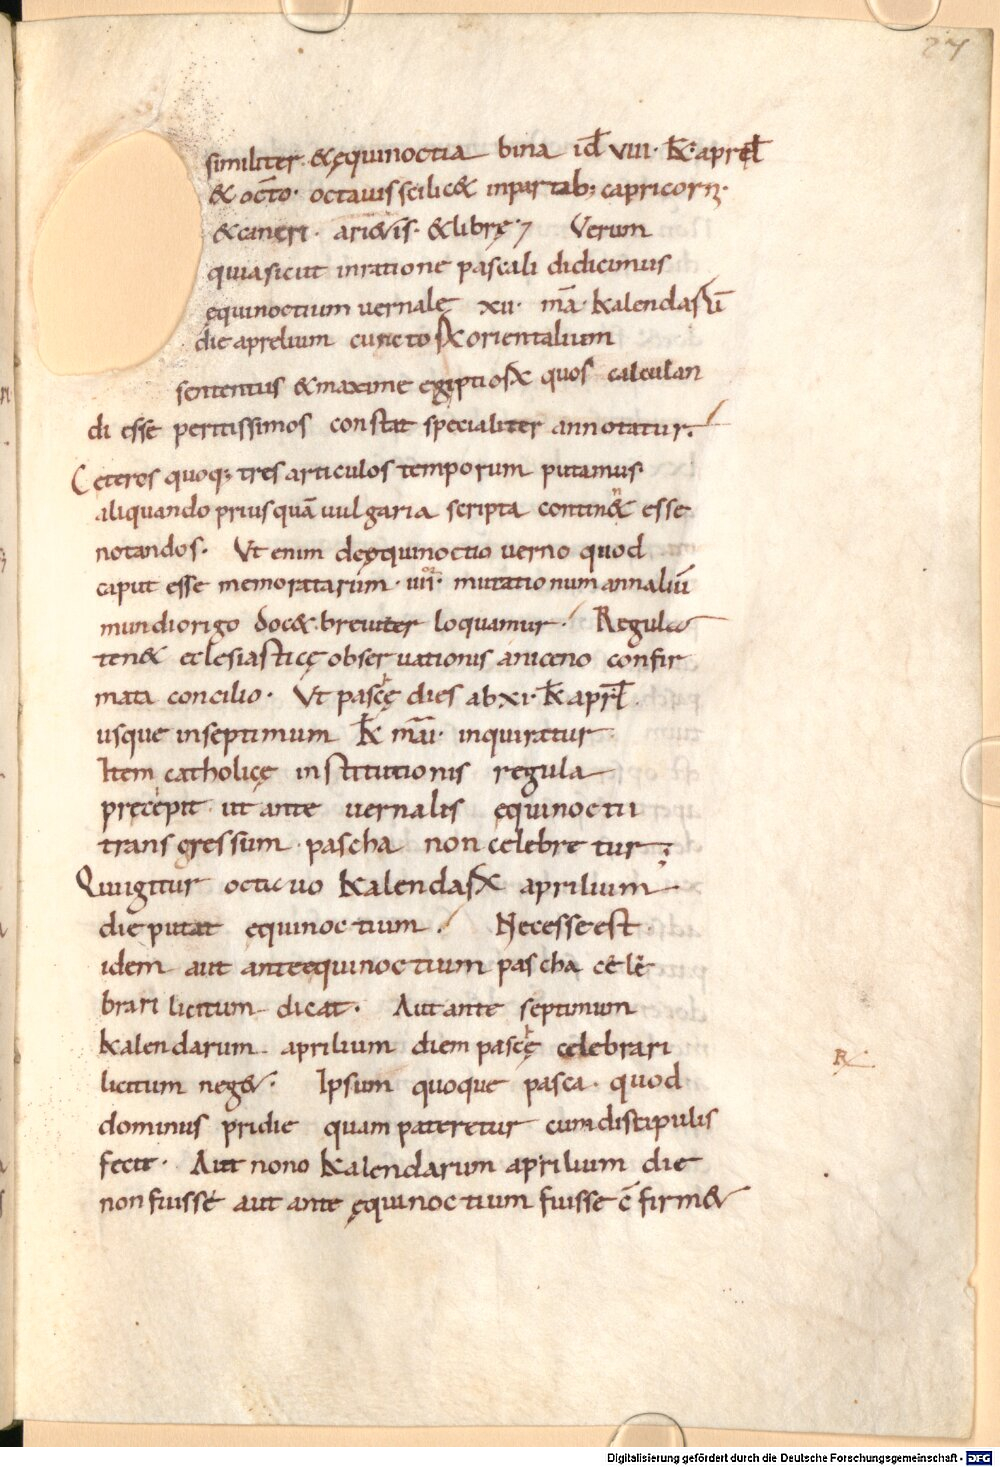 27
similiter. & ęquinoctia bina id̄ VIII· K̄· aprel̄
& oct̄o· octauis scilic& in partib; capricorn̄·
& cancri· ari&is̄· & librę·⁊ Verum
quia sicut in ratione pascali didicimus
ęquinoctium uernalę XII· mā· Kalendaꝝ ū
die aprelium cunctoꝝ orientalium
sententiis & maxime egiptioꝝ quos calculan
di esse peritissimos constat specialiter annotatur.
Ceteros quoq; tres articulos temporum putamus
aliquando prius quā uulgaria scripta contin& esse
notandos. Ut enim de ęquinoctio uerno quod
caput esse memoratarum· IIII· mutationum annaliū
mundi origo doc& breuiter loquamur· Regula
ten& ecclesiasticę obseruationis a niceno confir
mata concilio. Ut pascę dies ab XI· K̄ aprl̄
usque in septimum K̄ māi· inquiratur
Item catholicę institutionis regula
precepit ut ante uernalis equinoctii
transgressum pascha non celebretur;
Qui igitur octauo Kalendaꝝ aprilium
die putat equinoctium. Necesse est
idem aut ante equinoctium pascha cele
brari licitum dicat. Aut ante septimum
Kalendarum aprilium diem pascę celebrari
licitum neg&. Ipsum quoque pasca quod
dominus pridie quam pateretur cum discipulis
fecit. Aut nono Kalendarum aprilium die
non fuisse aut ante ęquinoctium fuisse c̄firm&
Digitalisierung gefördert durch die Deutsche Forschungsgemeinschaft - DFG